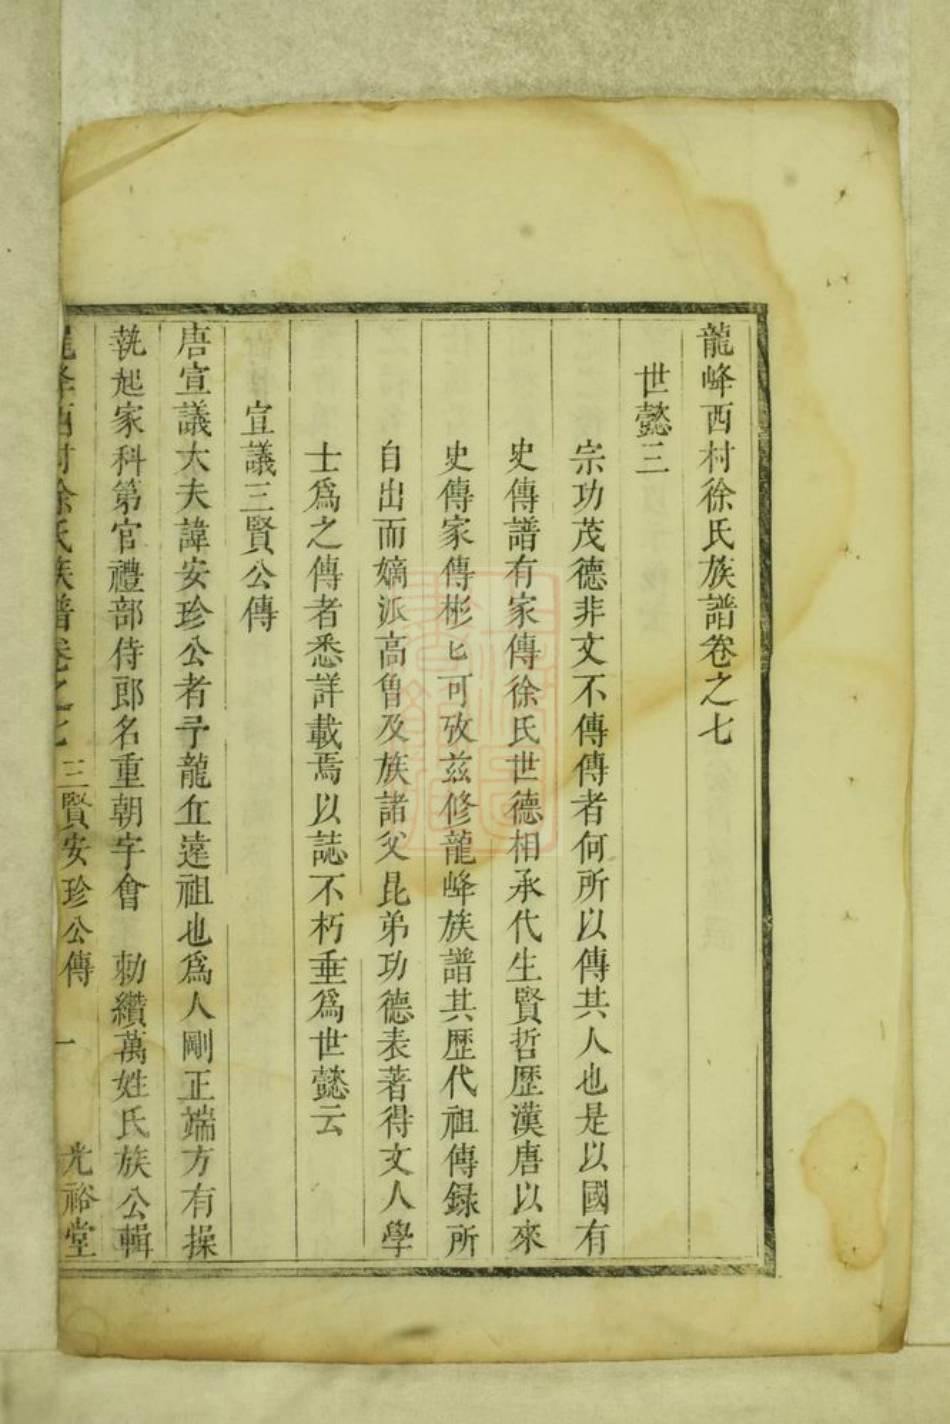 龍峰西村徐氏族譜卷之七
世懿三
宗功茂德非文不傳傳者何所以傳其人也是以國有
史傳譜有家傳徐氏世德相承代生賢哲歷漢唐以來
史傳家傳彬匕可攷兹修龍峰族譜其歷代祖傳録所
自出而嫡派高曾及族諸父昆弟功德表著得文人學
士爲之傳者悉詳載焉以誌不朽垂爲世懿云
宣議三賢公傳
唐宣議大夫諱安珍公者予龍丘遠祖也爲人剛正端方有操
執起家科第官禮部侍郎名重朝宇會 勅纘萬姓氏族公輯
龍峰西村徐氏族譜卷之七 三賢安珍公傳 一 光裕堂